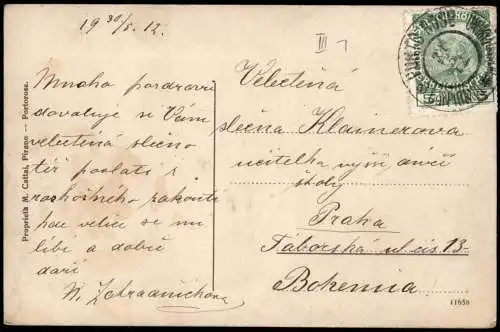 19 30/8. 12.
III 1
Mnoho pozdravů
dovoluje si Vám
velectěná slečno
též poslati z
rozkošného zákoutí
kde velice se mi
líbí a dobře
daří
N. Zahradníčkova
Proprietà M. Cattai, Pirano — Portorose.
Velectěná
slečna Klainerova
učitelka vyšší dívčí
školy
Praha
Táborská ul. čís. 13.
Bohemia
11658